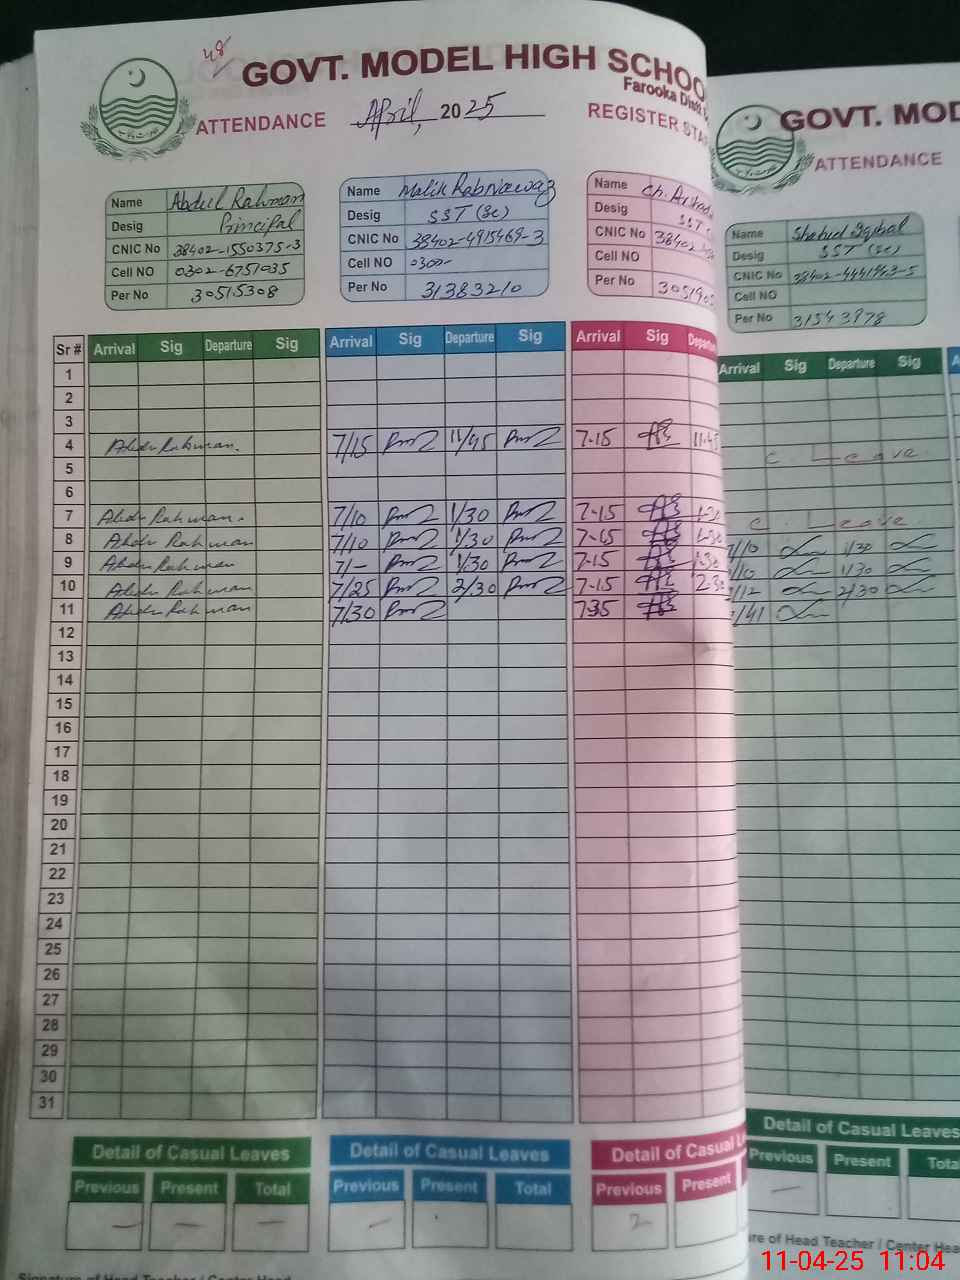 48
GOVT. MODEL HIGH SCHOO
Farooka Distt
ATTENDANCE April, 2025 REGISTER STA
Name Abdul Rahman
Desig Principal
CNIC No 38402-1550375-3
Cell NO 0302-6751035
Per No 30515308
Name Malik Rabnawaz
Desig SST (Sc)
CNIC No 38402-4915469-3
Cell NO 0300-
Per No 31383210
Name Ch. Arshad
Desig SST
CNIC No 38402
Cell NO
Per No 3051905
Sr # Arrival Sig Departure Sig Arrival Sig Departure Sig Arrival Sig Departu
1
2
3
4 Abdu Rahman. 7/15 11/45 7-15 11-45
5
6
7 Abdu Rahman. 7/10 1/30 7-15 1-30
8 Abdu Rahman 7/10 1/30 7-15 1-30
9 Abdu Rahman 7/- 1/30 7-15 1-30
10 Abdu Rahman 7/25 2/30 7-15 2-30
11 Abdu Rahman 7/30 7-35
12
13
14
15
16
17
18
19
20
21
22
23
24
25
26
27
28
29
30
31
Detail of Casual Leaves Detail of Casual Leaves Detail of Casual L
Previous Present Total Previous Present Total Previous Present
— — — — 2
Signature of Head Teacher / Center Head
GOVT. MOD
ATTENDANCE
Name Shahid Iqbal
Desig SST (Sc)
CNIC No 38402-4441943-5
Cell NO
Per No 31343978
Arrival Sig Departure Sig A
C. Leave
C. Leave
7/10 1/30
/10 1/30
/12 2/30
/41
Detail of Casual Leaves
Previous Present Tota
—
ure of Head Teacher / Center Hea
11-04-25 11:04